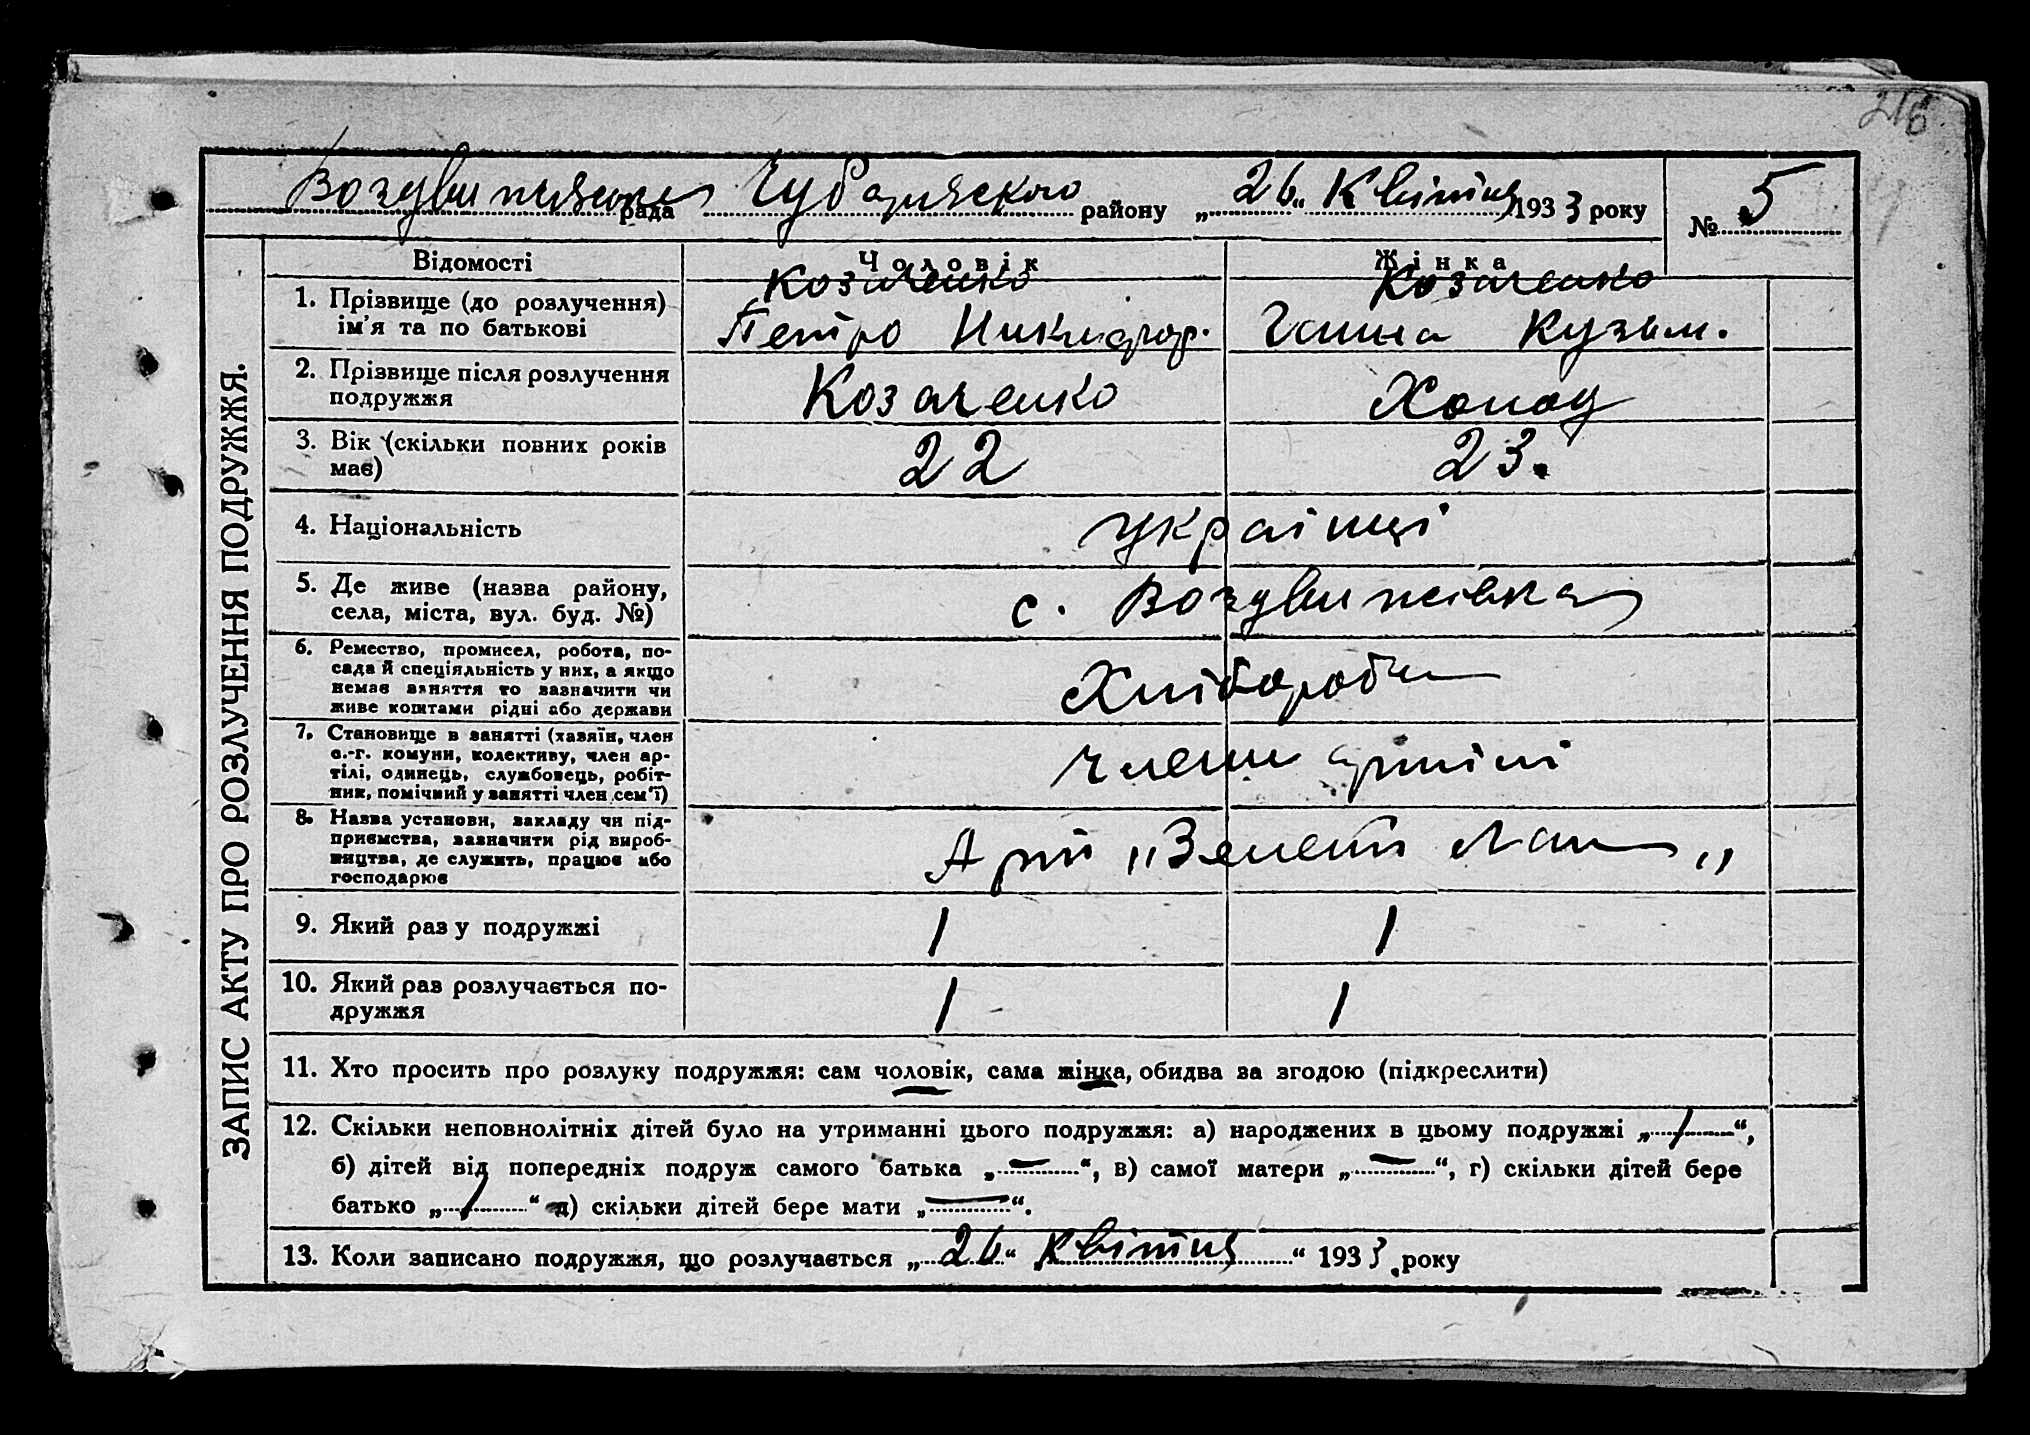 216
Воздвиженська рада Чубарівського району „26“ Квітня 1933 року № 5
ЗАПИС АКТУ ПРО РОЗЛУЧЕННЯ ПОДРУЖЖЯ.
Відомості Чоловік Жінка
1. Прізвище (до розлучення) Козаченко Козаченко
ім'я та по батькові Петро Никифор. Ганна Кузьм.
2. Прізвище після розлучення
подружжя Козаченко
3. Вік (скільки повних років
має) 22 23.
4. Національність українці
5. Де живе (назва району,
села, міста, вул. буд. №) с. Воздвижівка
6. Ремество, промисел, робота, по-
сада й спеціяльність у них, а якщо
немає заняття то зазначити чи
живе коштами рідні або держави Хлібороби
7. Становище в занятті (хазяїн, член
с.-г. комуни, колективу, член ар-
тілі, одинець, службовець, робіт-
ник, помічний у занятті член сем'ї) члени артілі
8. Назва установи, закладу чи під-
приємства, зазначити рід вироб-
ництва, де служить, працює або
господарює Арті „Зелений Лан„
9. Який раз у подружжі 1 1
10. Який раз розлучається по-
дружжя 1 1
11. Хто просить про розлуку подружжя: сам чоловік, сама жінка, обидва за згодою (підкреслити)
12. Скільки неповнолітніх дітей було на утриманні цього подружжя: а) народжених в цьому подружжі „1“,
б) дітей від попередніх подруж самого батька „—“, в) самої матери „—“, г) скільки дітей бере
батько „1“ д) скільки дітей бере мати „—“.
13. Коли записано подружжя, що розлучається „26“ Квітня “ 1933 року